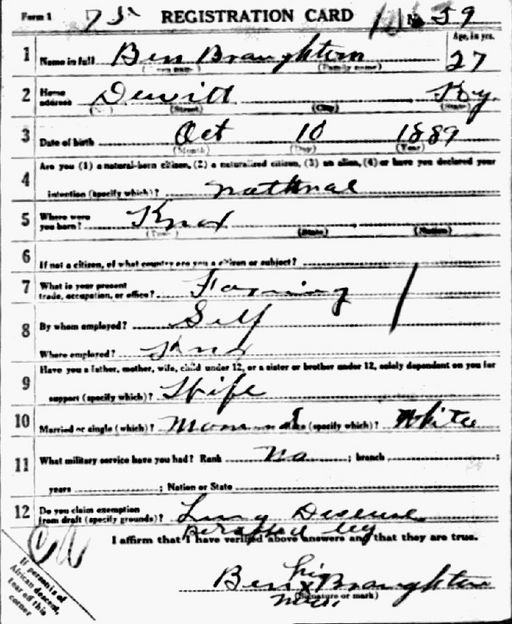 Form 1 REGISTRATION CARD No. 59
1 Name in full Ben Braughton Age, in yrs. 27
(Family name)
2 Home address Dewitt Ky.
(No.) (Street) (City) (State)
3 Date of birth Oct 10 1889
(Month) (Day) (Year)
4 Are you (1) a natural-born citizen, (2) a naturalized citizen, (3) an alien, (4) or have you declared your
intention (specify which)?
5 Where were you born? Knox
(Town) (State) (Nation)
6 If not a citizen, of what country are you a citizen or subject?
7 What is your present trade, occupation, or office? Farming
8 By whom employed? Self
Where employed? Knox
9 Have you a father, mother, wife, child under 12, or a sister or brother under 12, solely dependent on you for
support (specify which)? Wife
10 Married or single (which)? Race (specify which)? White
11 What military service have you had? Rank No ; branch
years ; Nation or State
12 Do you claim exemption from draft (specify grounds)? Lung Disease
I affirm that I have verified above answers and that they are true.
If person is of African descent, tear off this corner
his
Ben x Braughton
(Signature or mark)